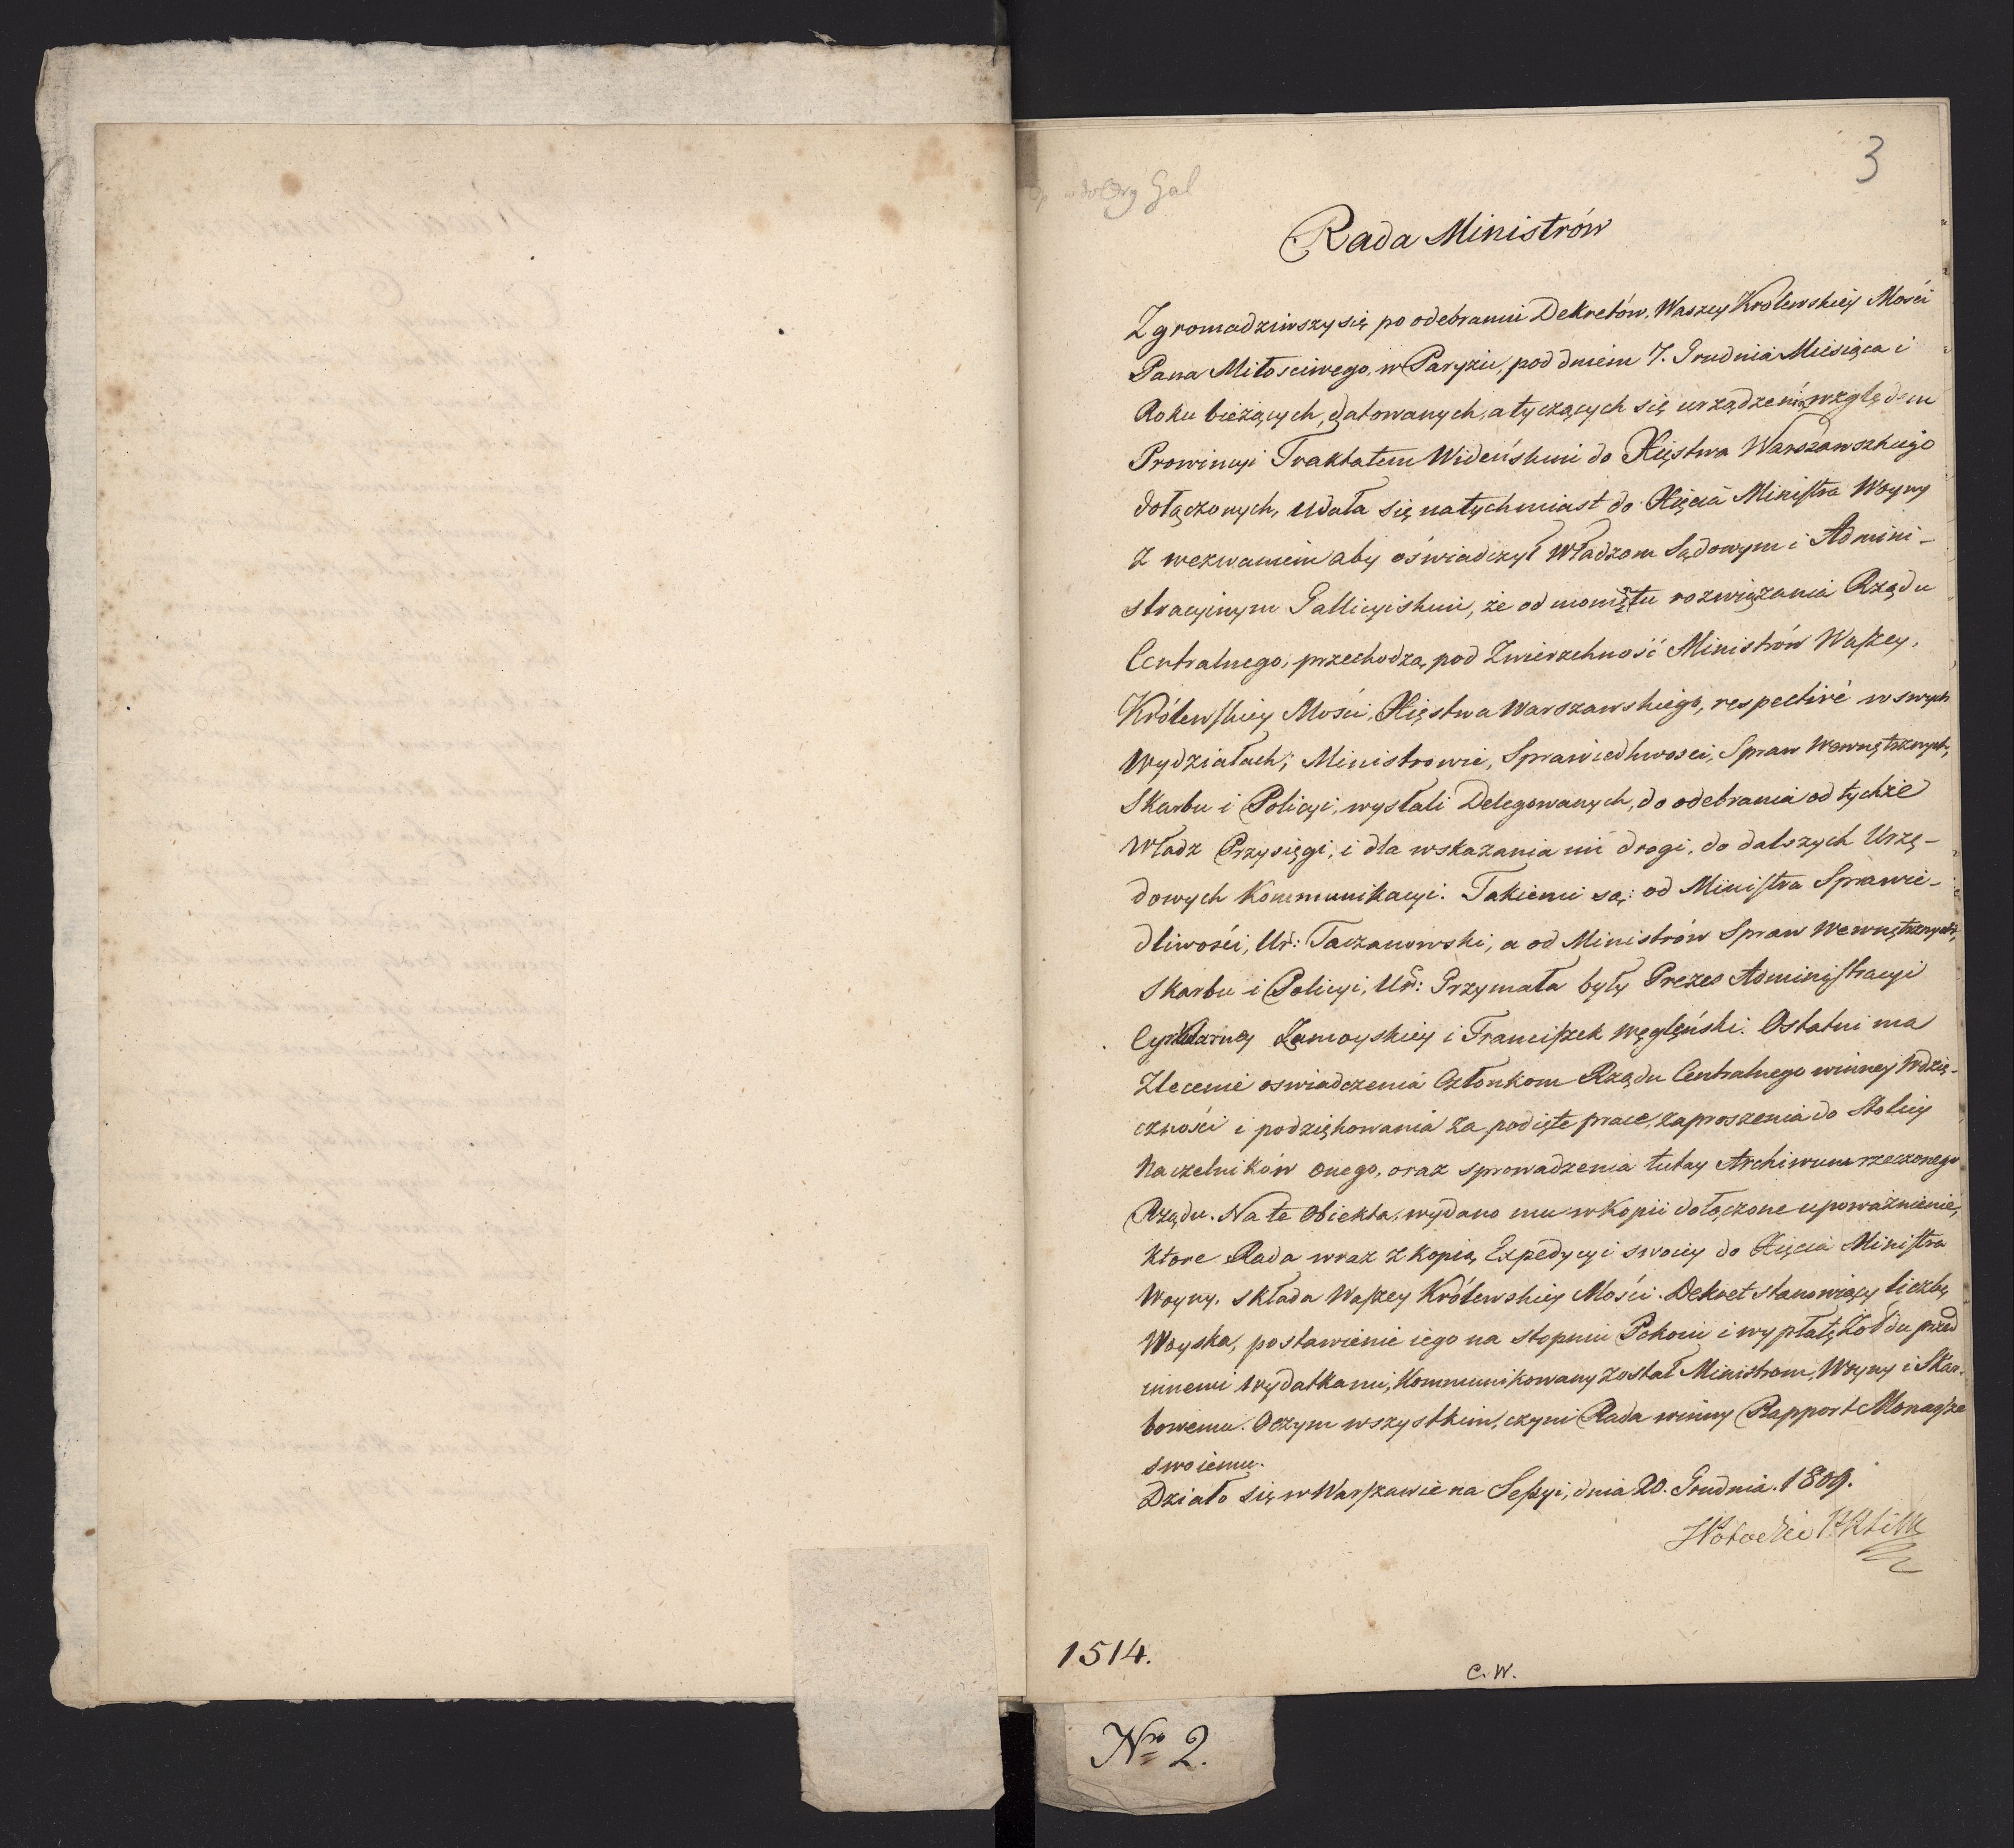 3
Gal
Rada Ministrów
Zgromadziwszy się po odebraniu Dekretów, Waszey Królewskiey Mości
Pana Miłosciwego, w Paryżu, pod dniem 7. Grudnia Miesiąca i
Roku bieżących, datowanych, a tyczących się urządzenia względem
Prowincyi Traktatem Wideńskim do Xięstwa Warszawskiego
dołączonych, udała się natychmiast do Xięcia Ministra Woyny
z wezwaniem aby oświadczył Władzom Sądowym i Admini-
stracyinym Gallicyiskim, że od momętu rozwiązania Rządu
Centralnego, przechodzą pod Zwierzchność Ministrów Waszey,
Królewskiey Mości, Xięstwa Warszawskiego, respectivè w swych
Wydziałach; Ministrowie, Sprawiedliwosci, Spraw Wewnętrznych,
Skarbu i Policyi, wysłali Delegowanych, do odebrania od tychże
Władz Przysięgi, i dla wskazania im drogi, do dalszych Urzę-
dowych Kommunikacyi. Takiemi są: od Ministra Sprawie-
dliwości, Ur: Taczanowski, a od Ministrów Spraw Wewnętrznych,
Skarbu i Policyi, Ur: Przymała były Prezes Administracyi
Cyrkularney Zamoyskiey i Franciszek Węgleński. Ostatni ma
Zlecenie oswiadczenia Członkom Rządu Centralnego winney Wdzię-
czności i podziękowania za podięte prace, zaproszenia do Stolicy
Naczelników onego, oraz sprowadzenia tutay Archiwum rzeczonego
Rządu. Na te Obiekta, wydano mu w Kopii dołączone upoważnienie,
które Rada wraz z kopią Expedycyi swoiey do Xięcia Ministra
Woyny, składa Waszey Królewskiey Mości. Dekret stanowiący liczbę
Woyska, postawienie iego na stopniu Pokoiu i wypłatę Żołdu przed
innemi wydatkami, Kommunikowany został Ministrom, Woyny i Skar-
bowemu. O czym wszystkim, czyni Rada winny Rapport Monarsze
swoiemu.
Działo się w Warszawie na Sessyi, dnia 20. Grudnia. 1809.
1514.
C. W.
Nro 2.